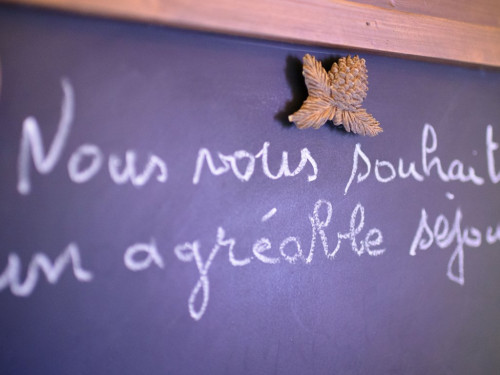 Nous vous souhait
un agréable séjou